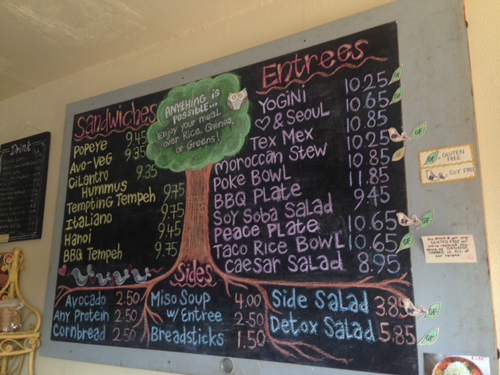 Drink
Sandwiches
Popeye 9.45
Avo-Veg 9.35
Cilantro 9.35
Hummus
Tempting Tempeh 9.75
Italiano 9.75
Hanoi 9.45
BBQ Tempeh 9.75
Anything is
possible...
Enjoy your meal
over Rice, Quinoa,
or Greens!
Entrees
Yogini 10.25
♡ & Seoul 10.65
Tex Mex 10.85
Moroccan Stew 10.25
Poke Bowl 10.85
BBQ Plate 11.85
Soy Soba Salad 9.45
Peace Plate 10.65
Taco Rice Bowl 10.65
Caesar Salad 8.95
Sides
Avocado 2.50
Any Protein 2.50
Cornbread 2.50
Miso Soup 4.00
w/Entree 2.00
Breadsticks 1.50
Side Salad 3.85
Detox Salad 5.85
GF GLUTEN
FREE
SOY FREE
GF
GF